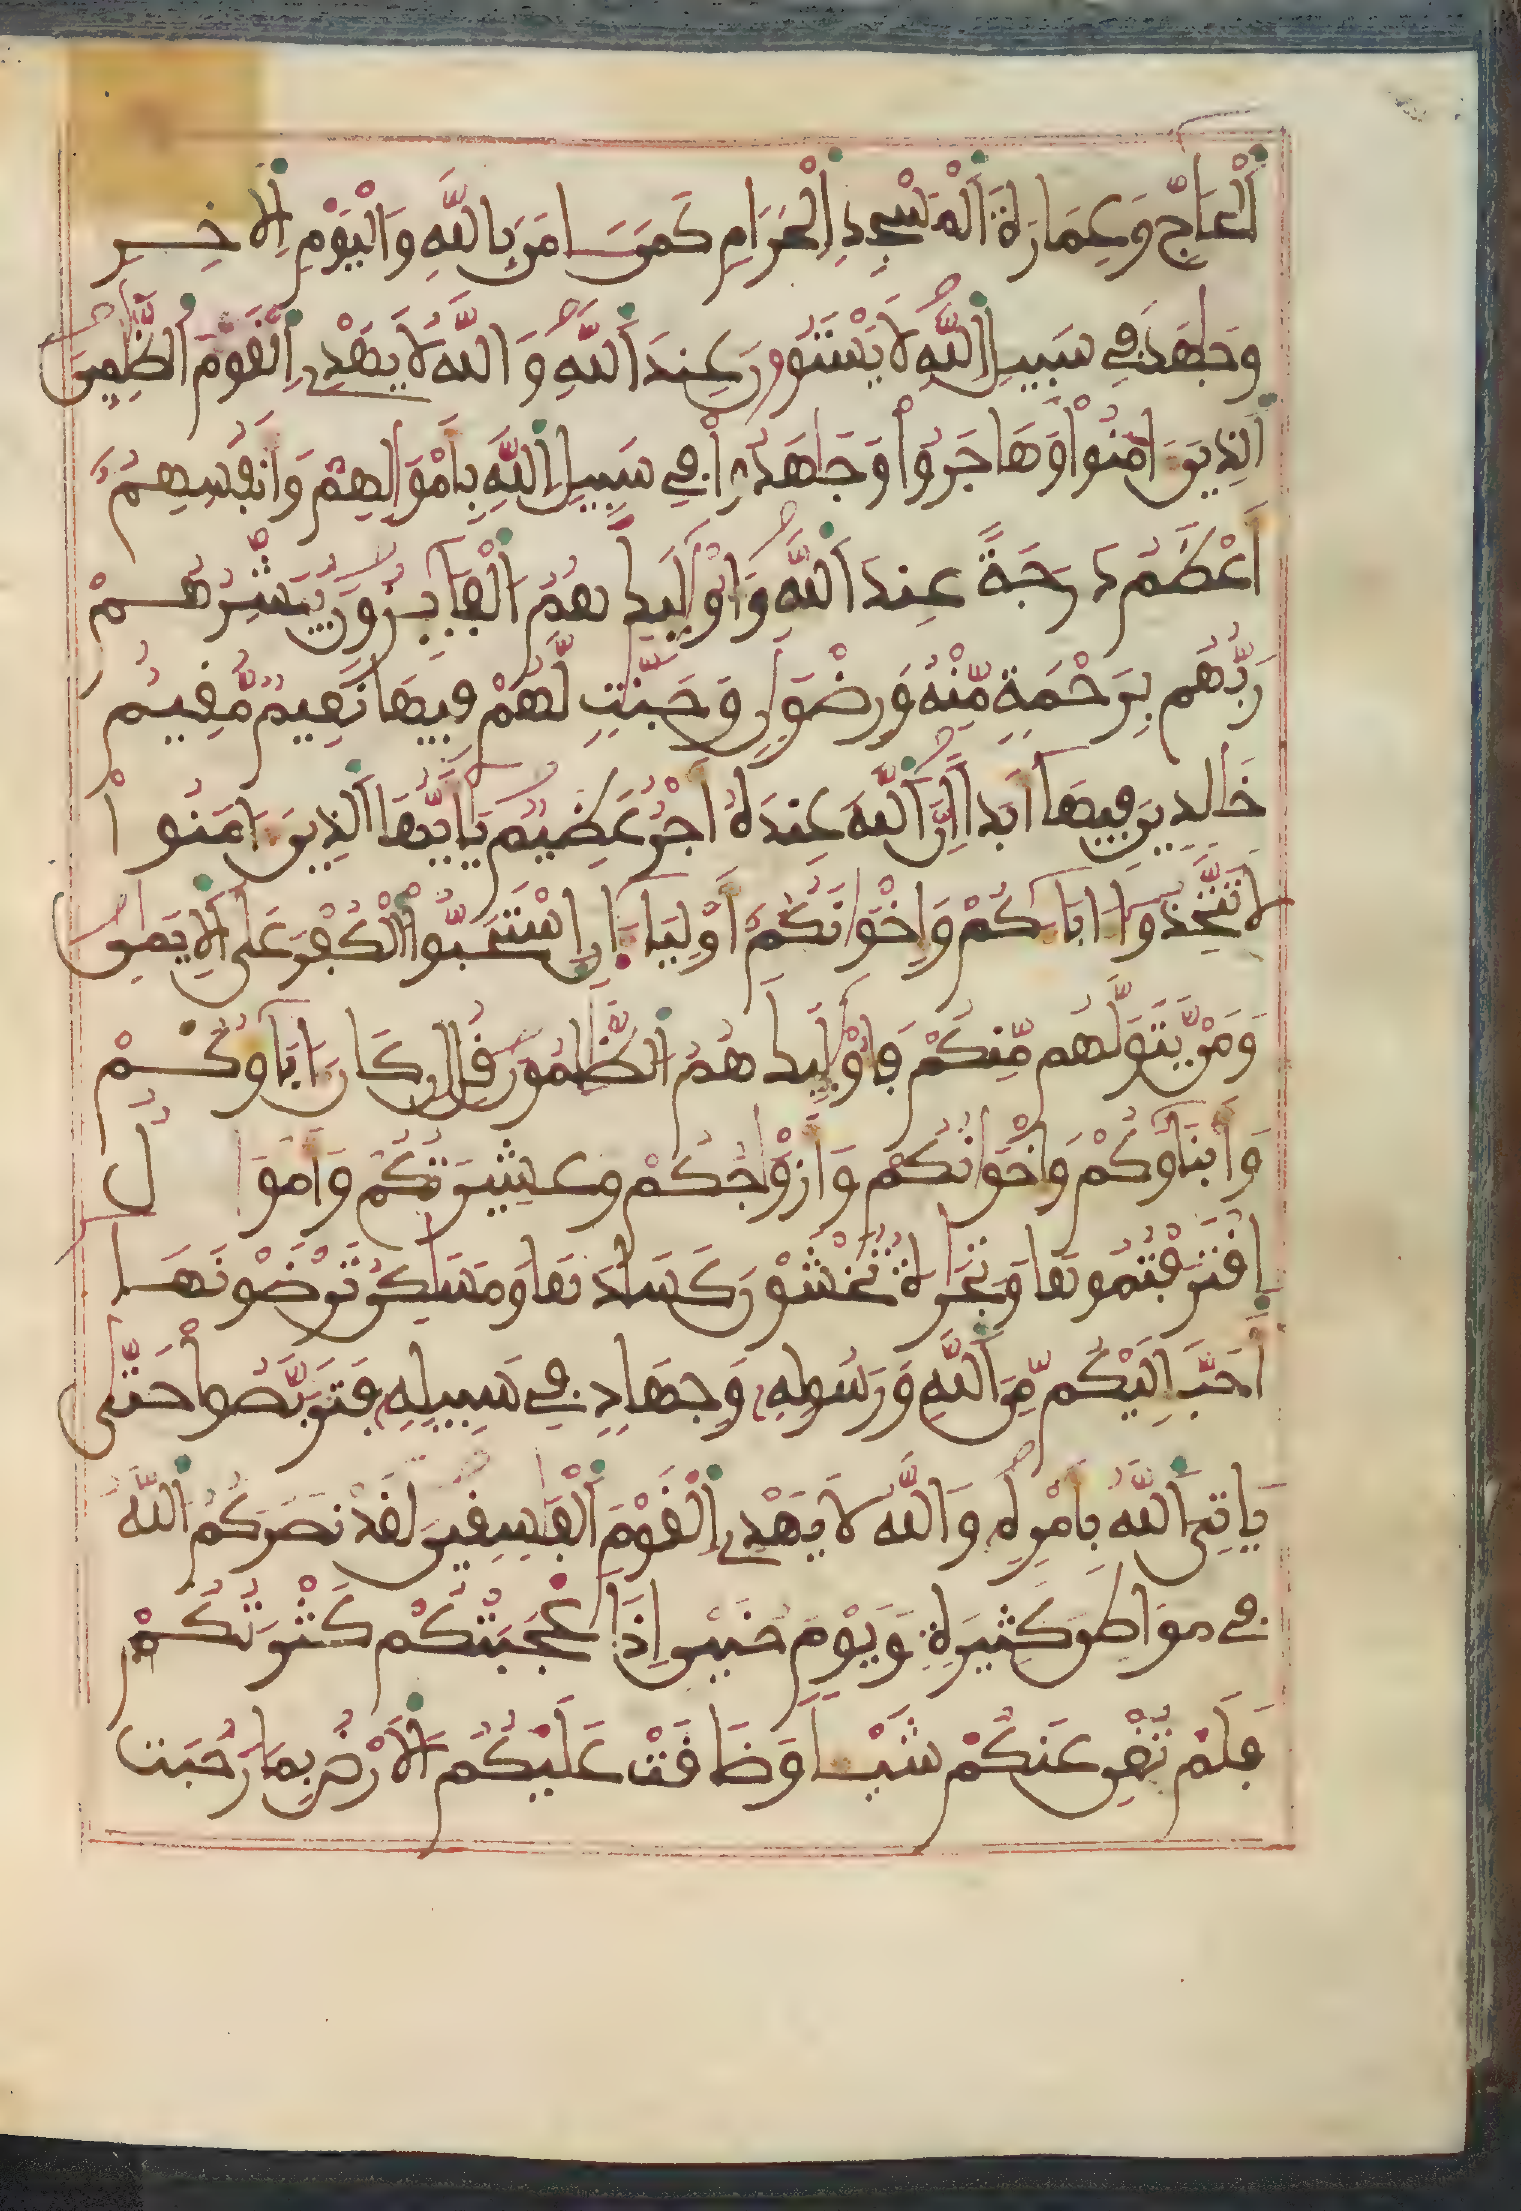 اَلْحَاجِّ وَعِمَارَةَ اَلْمَسْجِدِ اِلْحَرَامِ كَمَنَ امَنَ بِاللَّهِ وَالْيَوْمِ اِلاخِرِ
وَجَٰهَدَ فِے سَبِيلِ اِللَّهِ لَا يَسْتَوُۥنَ عِندَ اَللَّهِ وَاللَّهُ لَا يَهْدِے اِلْقَوْمَ اَلظَّٰلِمِينَ
اَلذِينَ ءَامَنُواْ وَهَاجَرُواْ وَجَٰهَدُواْ فِے سَبِيلِ اِللَّهِ بِأَمْوَٰلِهِمْ وَأَنفُسِهِمُۥ
أَعْظَمُ دَرَجَةً عِندَ اَللَّهِ وَأُوْلَٰٓئِكَ هُمُ اَلْفَآئِزُونَ يُبَشِّرُهُمْ
رَبُّهُم بِرَحْمَةٍ مِّنْهُ وَرِضْوَٰنٍ وَجَنَّٰتٍ لَّهُمْ فِيهَا نَعِيمٌ مُّقِيمٌ
خَالِدِينَ فِيهَآ أَبَداً اِنَّ اَللَّهَ عِندَهُۥٓ أَجْرٌ عَظِيمٌ يَٰٓأَيُّهَا اَلذِينَ ءَامَنُواْ
لَا تَتَّخِذُوٓاْ ءَابَآءَكُمْ وَإِخْوَانَكُمُۥٓ أَوْلِيَآءَ اِنِ اِسْتَحَبُّواْ اُلْكُفْرَ عَلَى اَلِايمَٰنِ
وَمَنْ يَّتَوَلَّهُم مِّنكُمْ فَأُوْلَٰٓئِكَ هُمُ اُلظَّٰلِمُونَ قُلِ اِن كَانَ ءَابَآؤُكُمْ
وَأَبْنَآؤُكُمْ وَإِخْوَانُكُمْ وَأَزْوَٰجُكُمْ وَعَشِيرَتُكُمْ وَأَمْوَالٌ
اِقْتَرَفْتُمُوهَا وَتِجَٰرَةٌ تَخْشَوْنَ كَسَادَهَا وَمَسَٰكِنُ تَرْضَوْنَهَا
أَحَبَّ إِلَيْكُم مِّنَ اَللَّهِ وَرَسُولِهِۦ وَجِهَادٍ فِے سَبِيلِهِۦ فَتَرَبَّصُواْ حَتَّىٰ
يَاتِيَ اَللَّهُ بِأَمْرِهِۦ وَاللَّهُ لَا يَهْدِے اِلْقَوْمَ اَلْفَٰسِقِينَ لَقَدْ نَصَرَكُمُ اُللَّهُ
فِے مَوَاطِنَ كَثِيرَةٍ وَيَوْمَ حُنَيْنٍ اِذَ اَعْجَبَتْكُمْ كَثْرَتُكُمْ
فَلَمْ تُغْنِ عَنكُمْ شَيْـاً وَضَاقَتْ عَلَيْكُمُ اُلَارْضُ بِمَا رَحُبَت